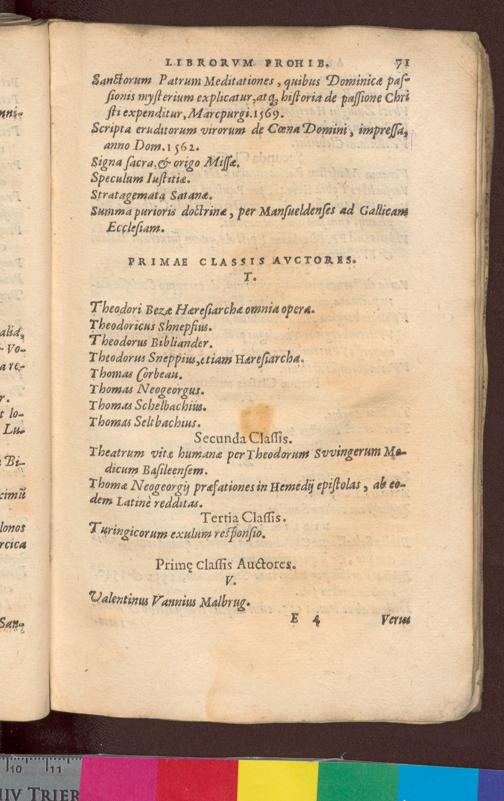 LIBRORVM PROHIB. 71
Sanctorum Patrum Meditationes, quibus Dominicæ paſ-
ſionis myſterium explicatur, atq; hiſtoria de paſſione Chri
ſti expenditur, Marcpurgi. 1569.
Scripta eruditorum virorum de Cœna Domini, impreſſa,
anno Dom. 1562.
Signa ſacra, & origo Miſſæ.
Speculum Iuſtitiæ.
Stratagemata Satanæ.
Summa purioris doctrinæ, per Manſueldenſes ad Gallicam
Eccleſiam.
PRIMAE CLASSIS AVCTORES.
T.
Theodori Bezæ Hæreſiarchæ omnia opera.
Theodoricus Shnepfius.
Theodorus Bibliander.
Theodorus Sneppius, etiam Hæreſiarcha.
Thomas Corbeau.
Thomas Neogeorgus.
Thomas Schelbachius.
Thomas Seltbachius.
Secunda Claſſis.
Theatrum vitæ humanæ per Theodorum Svvingerum Me-
dicum Baſileenſem.
Thomæ Neogeorgij præfationes in Hemedij epiſtolas, ab eo-
dem Latinè redditas.
Tertia Claſſis.
Turingicorum exulum reſponſio.
Primę Claſſis Auctores.
V.
Valentinus Vannius Malbrug.
E 4 Verus
alia,
- Vo-
a re-
r.
t lo-
Lu-
Bi-
cimū
lonos
rcica
San-
10 11
IV TRIER